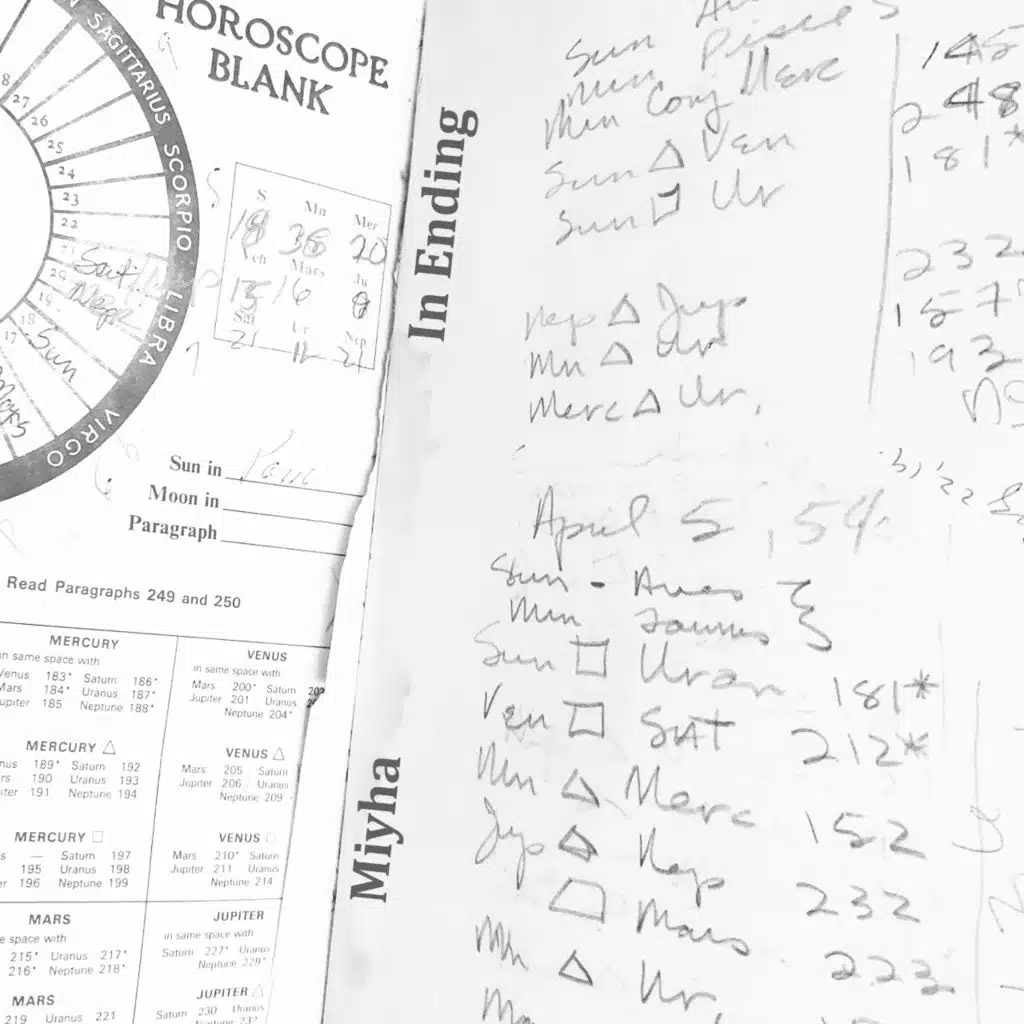 HOROSCOPE
BLANK
SAGITTARIUS
SCORPIO
LIBRA
VIRGO
27
26
25
24
23
22
21
20
19
18
17
Sat
Nep
Sun
Mars
S Mn Mer
18 36 20
Ven Mars Ju
15 16 9
Sat Ur Nep
21 11 21
Sun in
Moon in
Paragraph
Read Paragraphs 249 and 250
MERCURY
in same space with
Venus 183* Saturn 186*
Mars 184* Uranus 187*
Jupiter 185 Neptune 188*
MERCURY △
nus 189* Saturn 192
rs 190 Uranus 193
iter 191 Neptune 194
MERCURY □
s — Saturn 197
195 Uranus 198
er 196 Neptune 199
MARS
e space with
215* Uranus 217*
216* Neptune 218*
MARS
219 Uranus 221
VENUS
in same space with
Mars 200* Saturn 202
Jupiter 201 Uranus
Neptune 204*
VENUS △
Mars 205 Saturn
Jupiter 206 Uranus
Neptune 209
VENUS □
Mars 210* Saturn
Jupiter 211 Uranus
Neptune 214
JUPITER
in same space with
Saturn 227* Uranus
Neptune 229*
JUPITER △
Saturn 230 Uranus
Neptune 232
In Ending
Miyha
Sun Pisces
Mun
Mun Conj Merc 145
Sun △ Ven 248
Sun □ Ur 181*
Nep △ Jup 232
Mn △ Ur 157
Merc △ Ur. 193
April 5, 54
Sun - Aries
Mun Taurus
Sun □ Uran 181*
Ven □ SAT 212*
Mn △ Merc 152
Jup △ Nep 232
□ Mars 223
Mn △ Ur,